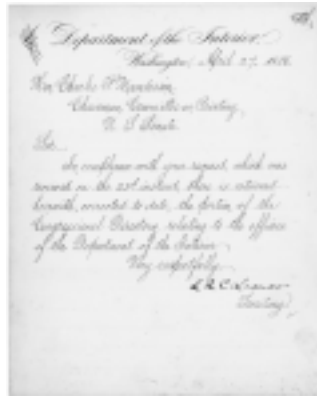 Department of the Interior,
Washington, April 27, 18
Hon. Charles F. Manderson,
Chairman, Committee on Printing,
U. S. Senate.
Sir:
In compliance with your request, which was
received on the 23d instant, there is returned
herewith, corrected to date, the portion of the
Congressional Directory relating to the officers
of the Department of the Interior.
Very respectfully,
L. Q. C. Lamar
Secretary.